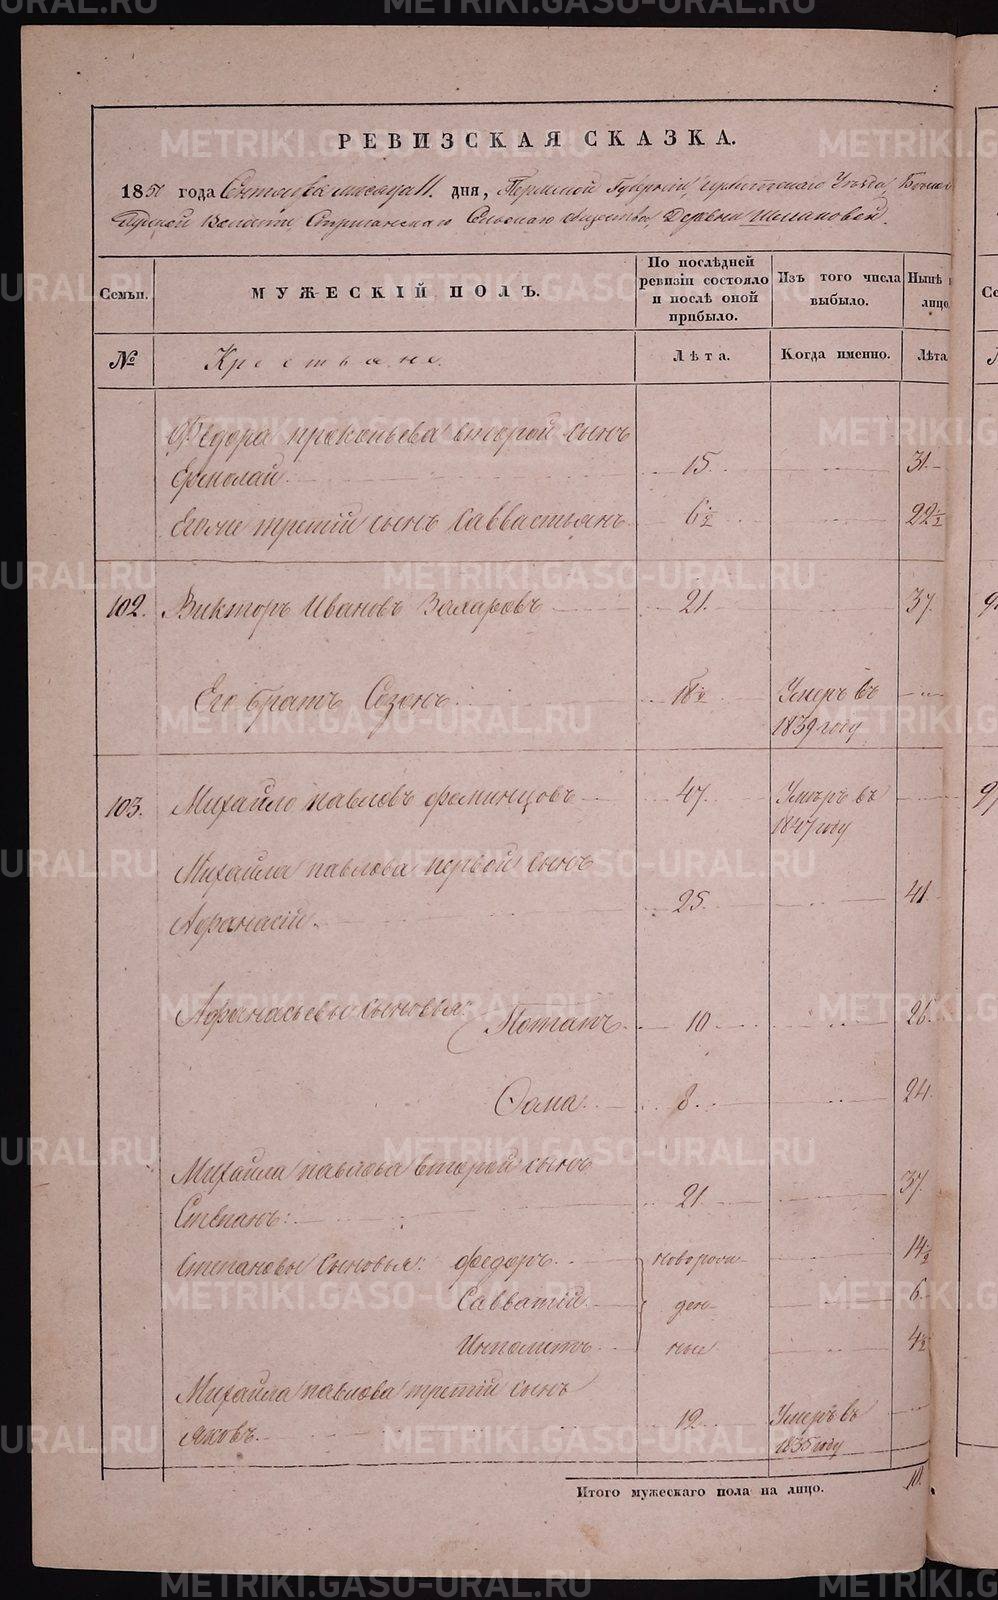 РЕВИЗСКАЯ СКАЗКА.
185 года Сентября месяца 11. дня, Пермской Губерніи Ирбитскаго Уѣзда,
Волости, Сельскаго общества, Деревни
Семьи. МУЖЕСКІЙ ПОЛЪ. По послѣдней ревизіи состояло и послѣ оной прибыло. Изъ того числа выбыло. Нынѣ на лицо.
№ Крестьяне. Лѣта. Когда именно. Лѣта
Федора прокопьева второй сынъ
Ермолай. 15. 31.
Его же третій сынъ Саввастьянъ 6½ 22½
102. Викторъ Ивановъ Захаровъ 21. 37.
Его братъ Созонъ. 18½ Умеръ въ
1839 году
103. Михайло павловъ фоминцовъ 47. Умеръ въ
1847 году
Михайла павлова первой сынъ
Афанасій. 25. 41.
Афанасьевы сыновья: Потапъ. 10 26.
Фома. 8. 24.
Михайла павлова второй сынъ
Степанъ: 21. 37.
Степановы сыновья: федоръ. новорож 14½
Савватій. ден 6.
Иполитъ. ные 4½
Михайла павлова третій сынъ
яковъ. 19. Умеръ въ
1835 году
Итого мужескаго пола на лицо. 10.
METRIKI.GASO-URAL.RU